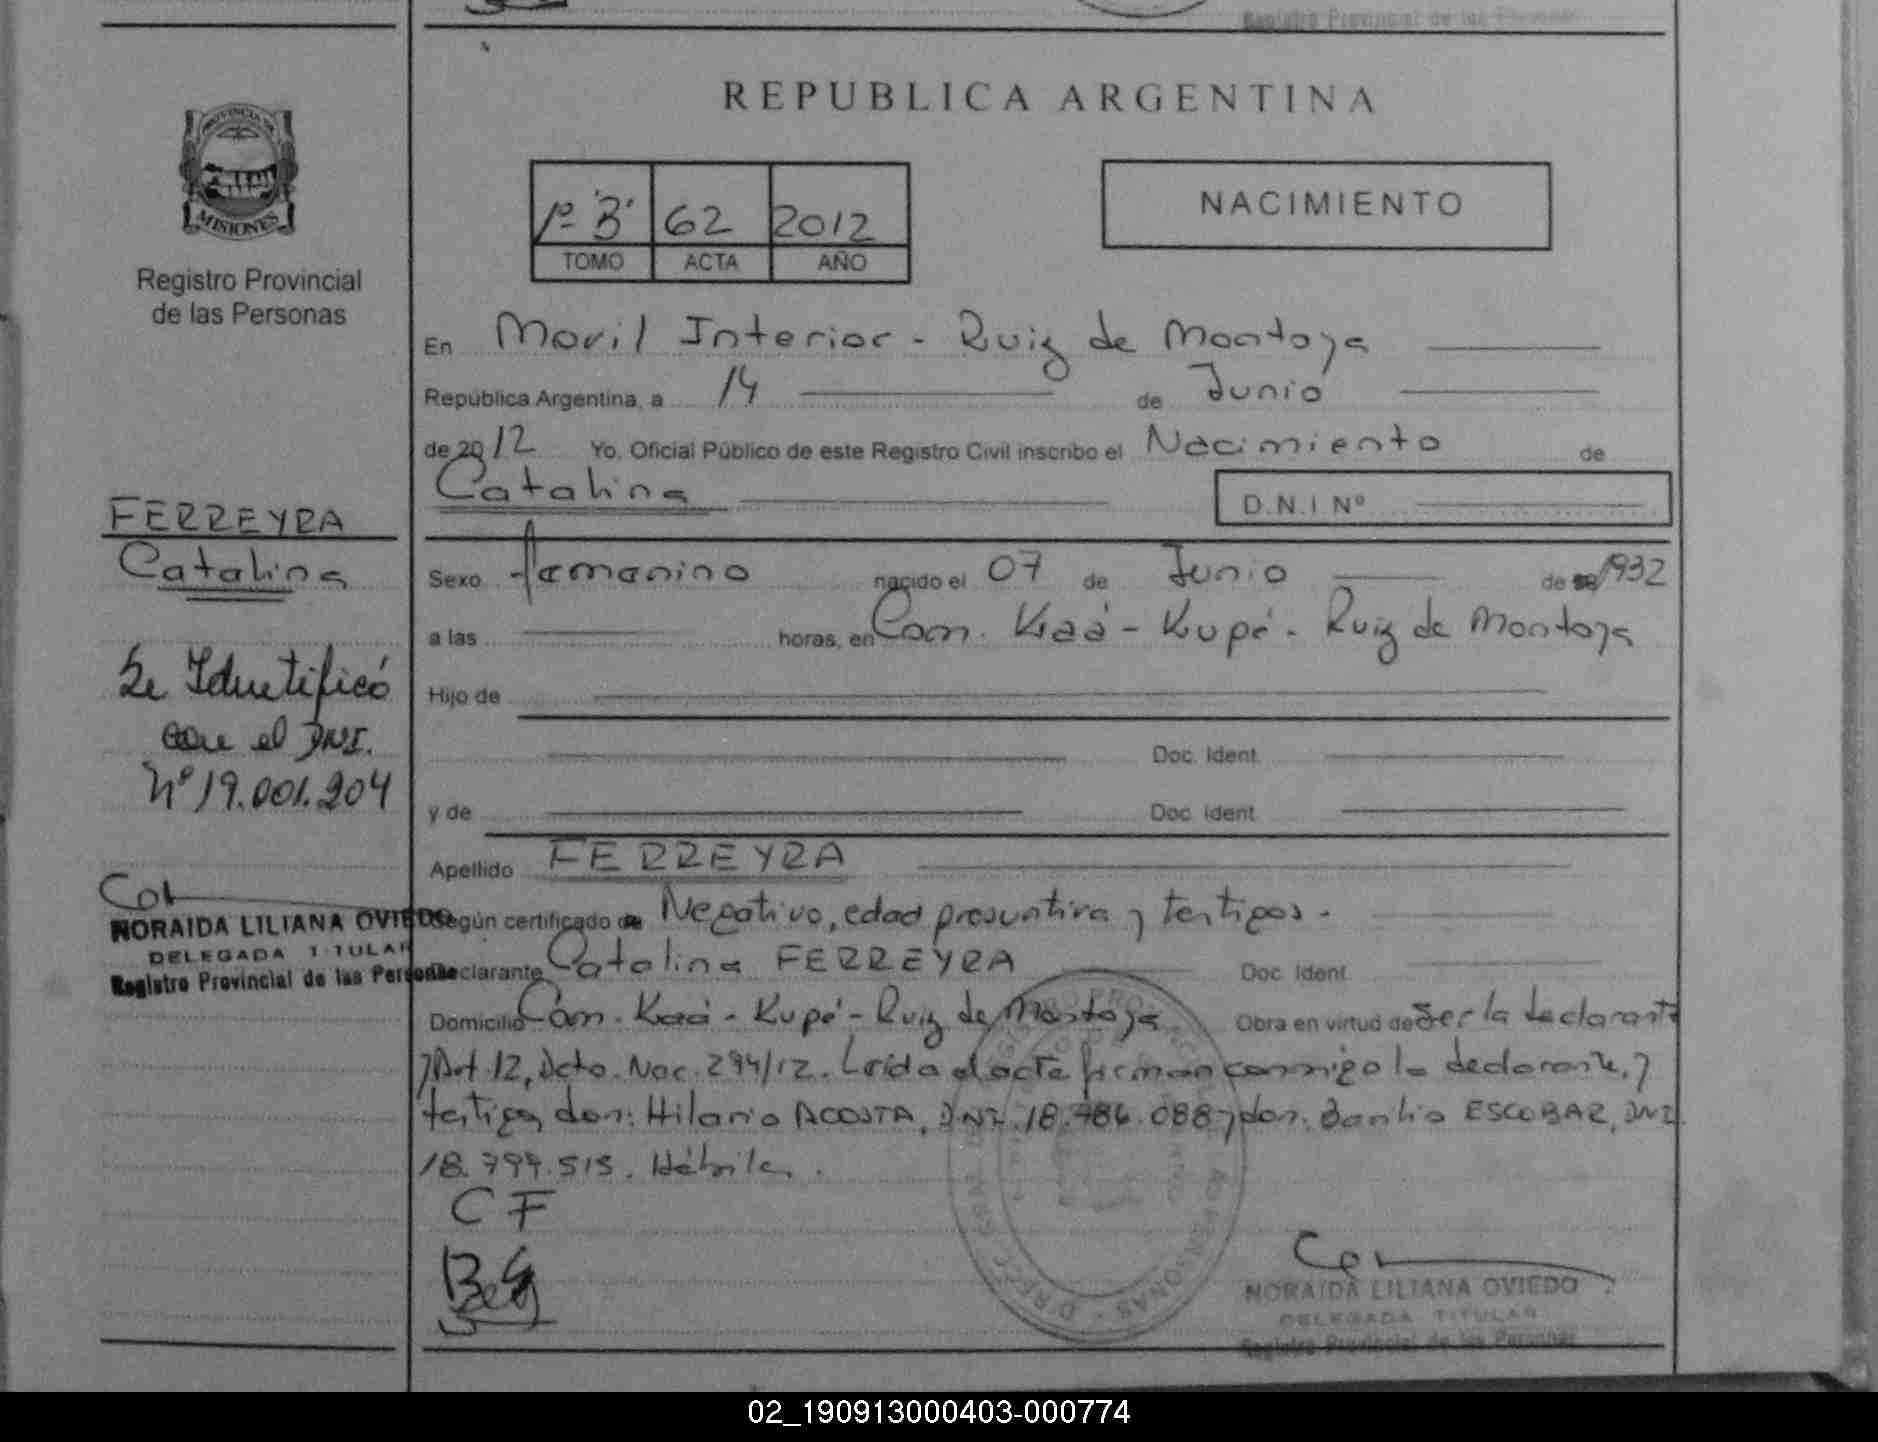 Registro Provincial de las Personas
REPUBLICA ARGENTINA
PROVINCIA DE
MISIONES
Registro Provincial
de las Personas
1º "B" 62 2012
TOMO ACTA AÑO
NACIMIENTO
En Movil Interior - Ruiz de Montoya
República Argentina, a 14 de Junio
de 2012 Yo, Oficial Público de este Registro Civil inscribo el Nacimiento de
Catalina
D.N.I Nº
FERREYRA
Catalina
Sexo femenino nacido el 07 de Junio de 1932
a las horas, en Com. Kaá - Kupé - Ruiz de Montoya
Hijo de
Doc. Ident.
y de Doc. Ident.
Se Identificó
con el DNI.
Nº 19.001.204
Apellido FERREYRA
Según certificado de Negativo, edad presuntiva y testigos.
Declarante Catalina FERREYRA Doc. Ident.
Domicilio Com. Kaá - Kupé - Ruiz de Montoya Obra en virtud de Ser la declarante
y Art. 12, Dcto. Nac. 294/12. Leída el acta firman conmigo la declarante, y
testigos don: Hilario ACOSTA, DNI. 18.786.088 y don. Basilio ESCOBAR, DNI
18.799.515. Hábiles.
CF
NORAIDA LILIANA OVIEDO
DELEGADA TITULAR
Registro Provincial de las Personas
NORAIDA LILIANA OVIEDO
DELEGADA TITULAR
Registro Provincial de las Personas
02_190913000403-000774